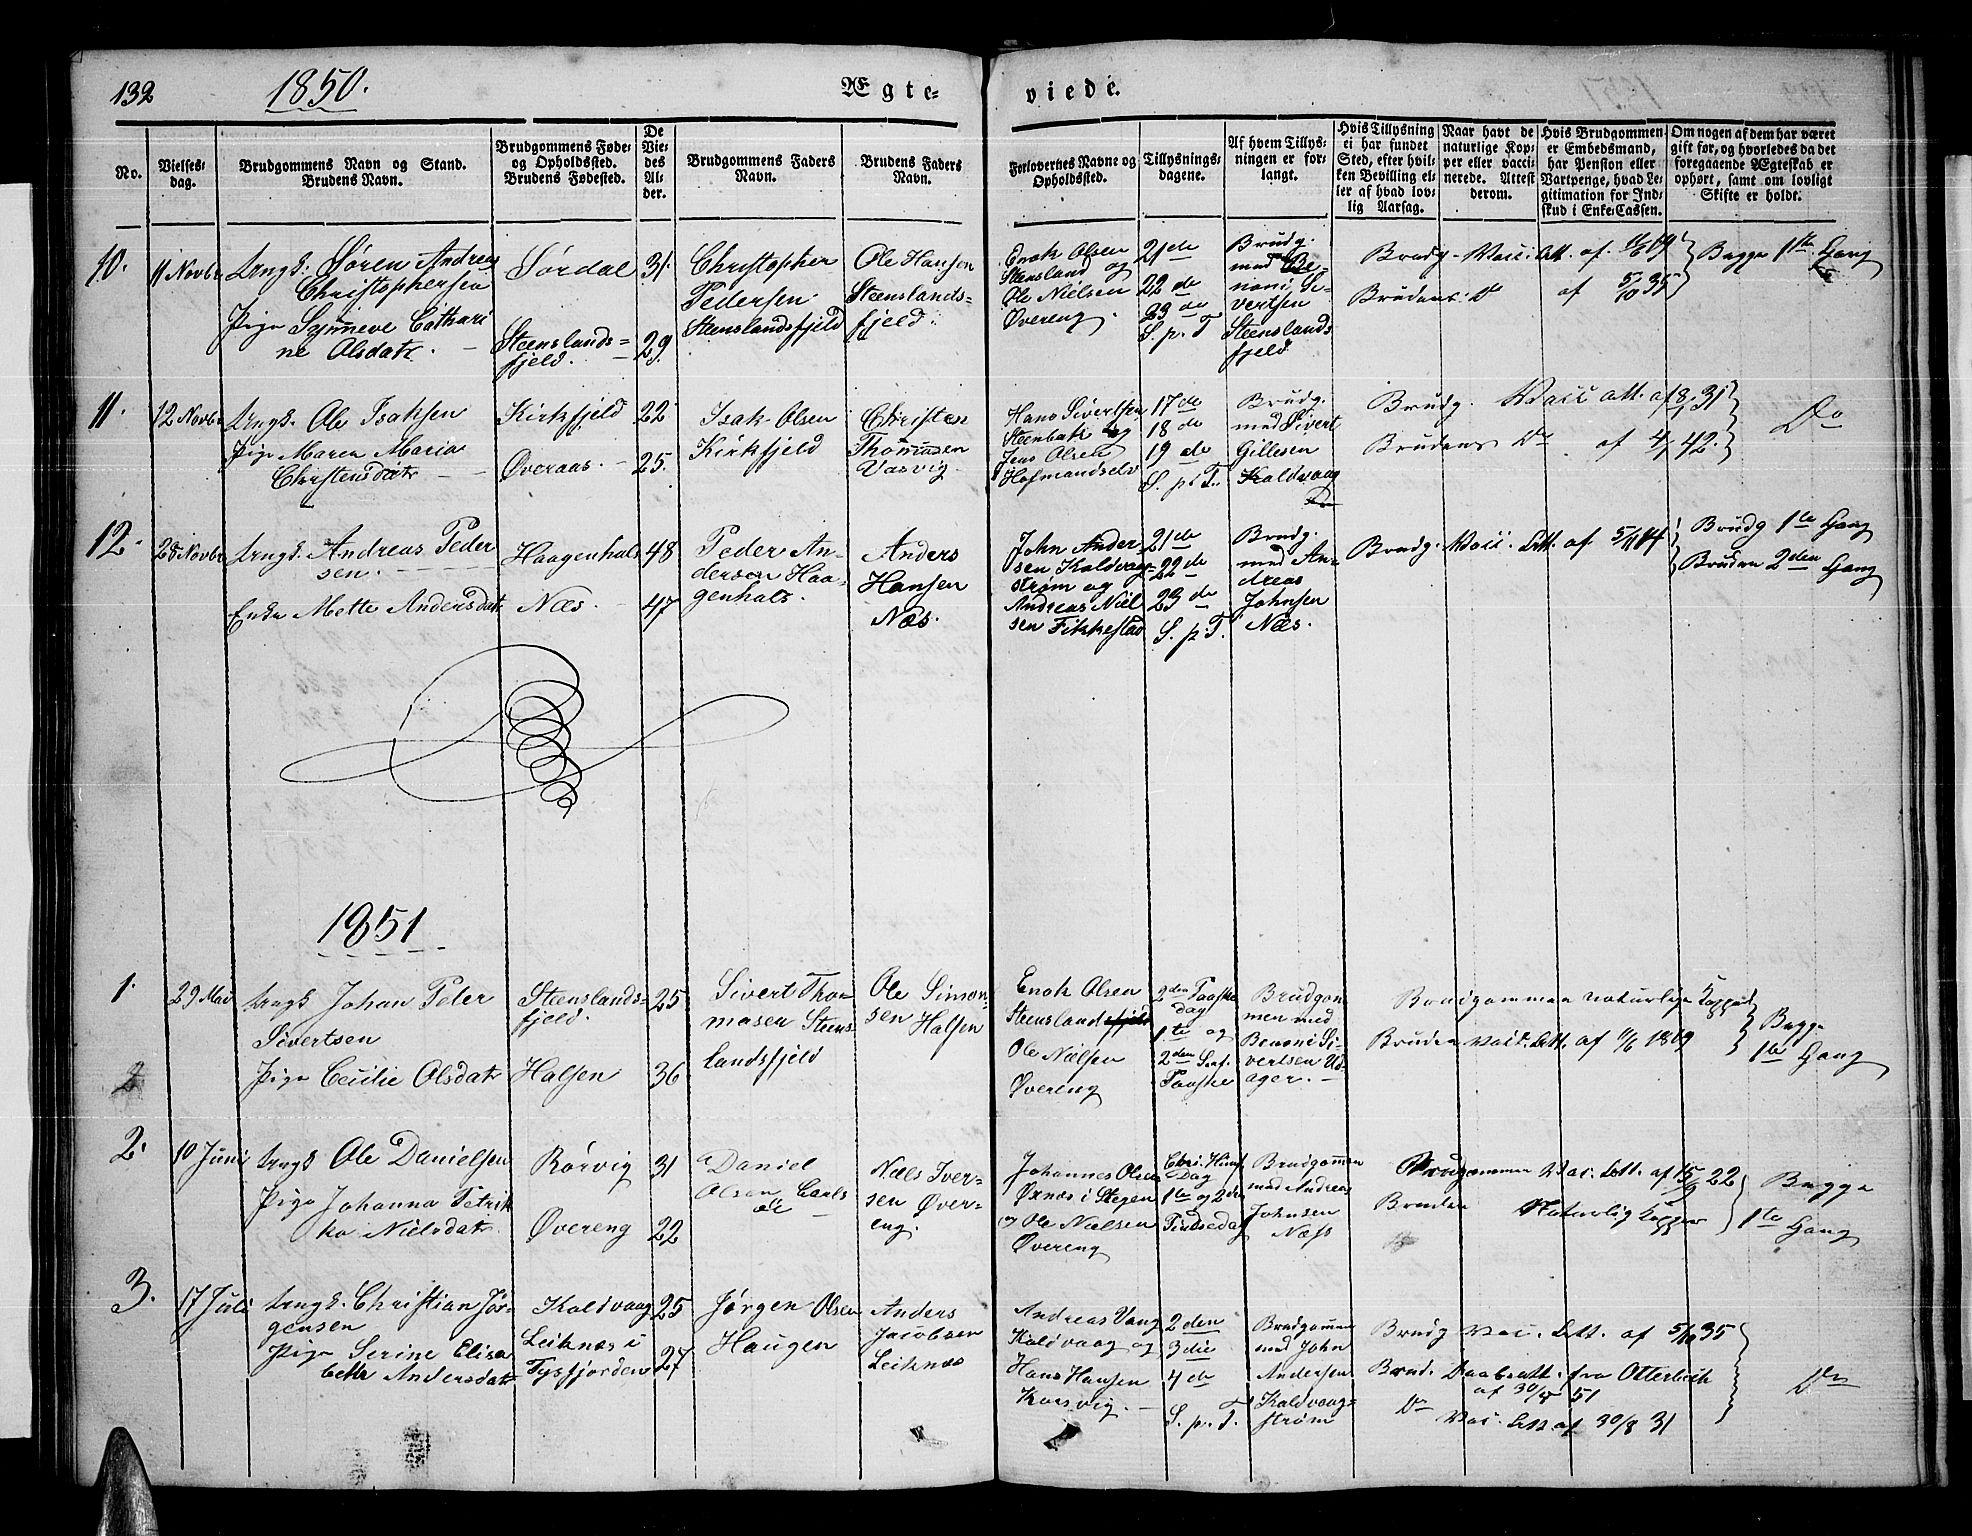 132
1850.
Ægte-
viede.
No.
Vielses-
dag.
Brudgommens Navn og Stand.
Brudens Navn.
Brudgommens Føde-
og Opholdssted.
Brudens Fødested.
De
Vie-
des
Al-
der.
Brudgommens Faders
Navn.
Brudens Faders
Navn.
Forlovernes Navne og
Opholdssted.
Tillysnings-
dagene.
Af hvem Tillys-
ningen er for-
langt.
Hvis Tillysning
ei har fundet
Sted, efter hvil-
ken Bevilling el-
ler af hvad lov-
lig Aarsag.
Naar havt de
naturlige Kop-
per eller vacci-
nerede. Attest
derom.
Hvis Brudgommen
er Embedsmand,
har Pension eller
Vartpenge, hvad Le-
gitimation for Ind-
skud i Enke-Cassen.
Om nogen af dem har været
gift før, og hvorledes da det
foregaaende Ægteskab er
ophørt, samt om lovligt
Skifte er holdt.
10.
11 Novbr
Ungk. Sören Andreas
Christophersen
Pige Synneve Cathari
ne Olsdatr.
Sördal
Steenslands-
fjeld.
31.
29.
Christopher
Pedersen
Steenslandsfjeld
Ole Hansen
Steenslands-
fjeld.
Enok Olsen
Steensland og
Ole Nielsen
Övereng.
21de
22de
23de
S. p. T
Brudg.
med Be-
noni Si-
vertsen
Steenslands
fjeld
Brudg. Vacc. Att. af 11/6 19
Brudens Do af 5/10 35
Begge 1ste Gang
11.
12 Novbr
Ungk. Ole Isaksen
Pige Maren Maria
Christensdatr
Kirkfjeld
Överaas.
22
25.
Isak Olsen
Kirkfjeld
Christen
Thommesen
Vasvig.
Hans Sivertsen
Steenbak og
Jens Olsen
Hofmandselv
17de
18de
19de
S. p. T.
Brudg.
med Sivert
Gillesen
Kaldvaag
Brudg. Vacc att. af 31
Brudens Do af 42.
Do
12.
28 Novbr
Ungk. Andreas Peder
sen.
Enke Mette Andersdatr
Haagenhals
Næs.
48
47
Peder An-
dersen Haa-
genhals.
Anders
Hansen
Næs.
John Ander
sen Kaldvaag-
strøm og
Andreas Niel
sen Fikkestad
21de
22de
23de
S. p. T.
Brudg.
med An-
dreas
Johnsen
Næs.
Brudg. Vacc. Att. af
Brudg 1ste Gang
Bruden 2den Gang
1851
1.
29 Mai
Ungk Johan Peter
Sivertsen
Pige Cecilie Olsdatr
Steenslands-
fjeld.
Halsen
25
36
Sivert Tho-
masen Steens
landsfjeld
Ole Simon-
sen Halsen
Enok Olsen
Steensland
Ole Nielsen
Övereng
2den Paaske
dag
1ste og
2den S. ef.
Paaske
Brudgom
men med
Benoni Si-
vertsen Ud-
ager.
Brudgommen naturlige Kopper
Bruden Vacc. Att. af 11/6 1819
Begge
1ste Gang
2.
10 Juni
Ungk Ole Danielsen
Pige Johanna Petrik
ka Nielsdatr.
Rörvig
Övereng
31
22
Daniel
Olsen
Niels Iver-
sen Över-
eng.
Johannes Olsen
Öxnæs i Stegen
og Ole Nielsen
Övereng
Chri. Himf.
Dag
1ste og 2den
Pindsedag
Brudgommen
med Andreas
Johnsen
Næss
Brudgommen Vac. Att. af 15/9 22
Bruden Naturlig Kopper
Begge
1ste
Gang
3.
17 Juli
Ungk. Christian Jör-
gensen
Pige Serine Elisa
beth Andersdatr
Kaldvaag
Leiknæs i
Tysfjorden
25
27
Jörgen Olsen
Haugen
Anders
Jacobsen
Leiknæs
Andreas Vang
Kaldvaag og
Hans Hansen
Korsvig.
2den
3die
4de
S. p. T.
Brudgommen
med John
Andersen
Kaldvaag-
strøm
Brudg Vac. Att. af 5/10 35
Brud. Daabsatt. fra Otterbech
af 51
Do Vac. Att af 30/8 31
Do